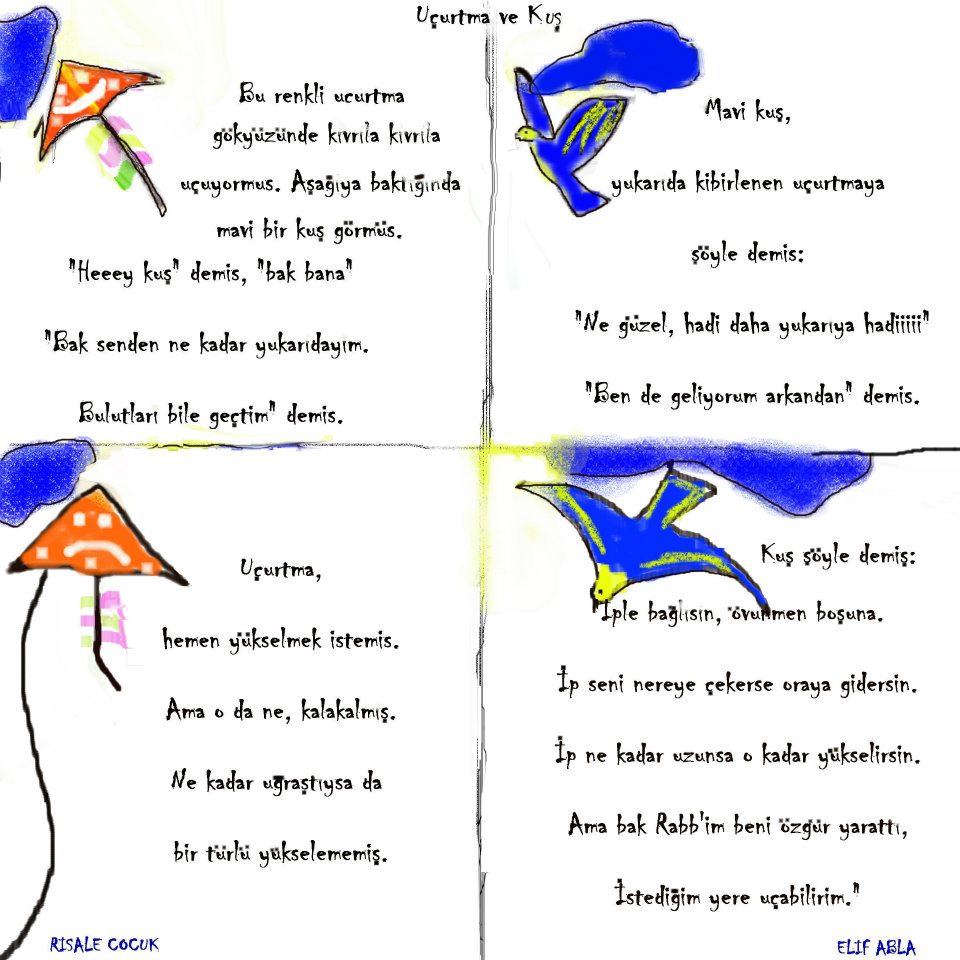 Uçurtma ve Kuş
Bu renkli ucurtma
gökyüzünde kıvrıla kıvrıla
uçuyormus. Aşağıya baktığında
mavi bir kuş görmüs.
"Heeey kuş" demis, "bak bana"
"Bak senden ne kadar yukarıdayım.
Bulutları bile geçtim" demis.
Mavi kuş,
yukarıda kibirlenen uçurtmaya
şöyle demis:
"Ne güzel, hadi daha yukarıya hadiiiii"
"Ben de geliyorum arkandan" demis.
Uçurtma,
hemen yükselmek istemis.
Ama o da ne, kalakalmış.
Ne kadar uğraştıysa da
bir türlü yükselememiş.
Kuş şöyle demiş:
İple bağlısın, övünmen boşuna.
İp seni nereye çekerse oraya gidersin.
İp ne kadar uzunsa o kadar yükselirsin.
Ama bak Rabb'im beni özgür yarattı,
İstediğim yere uçabilirim."
RISALE COCUK
ELIF ABLA